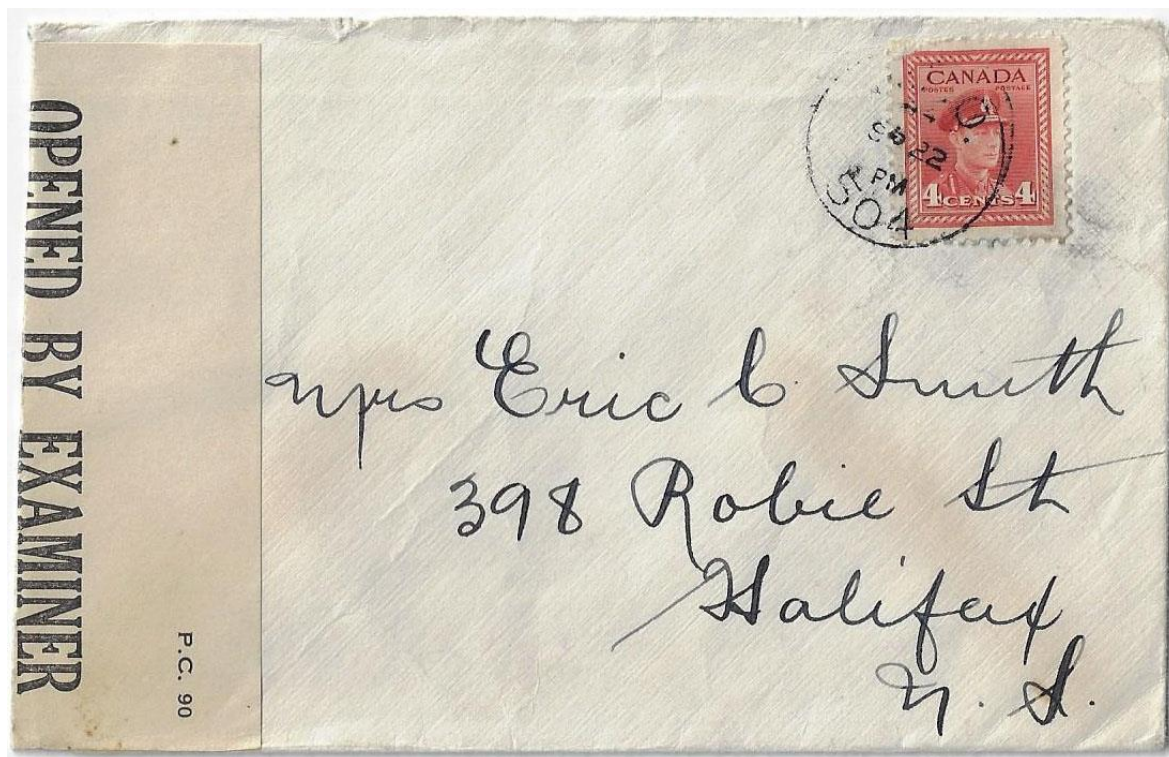 OPENED BY EXAMINER
P.C. 90
CANADA
POSTES POSTAGE
4 CENTS 4
22
PM
504
Mrs Eric C. Smith
398 Robie St
Halifax
N. S.